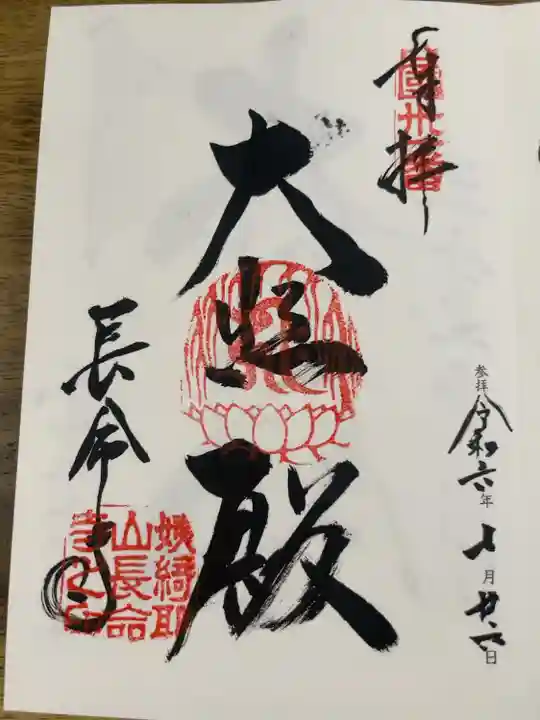 奉拝
大悲殿
長命寺
姨綺耶
山長命
寺之印
参拝 令和六年 七月廿六日